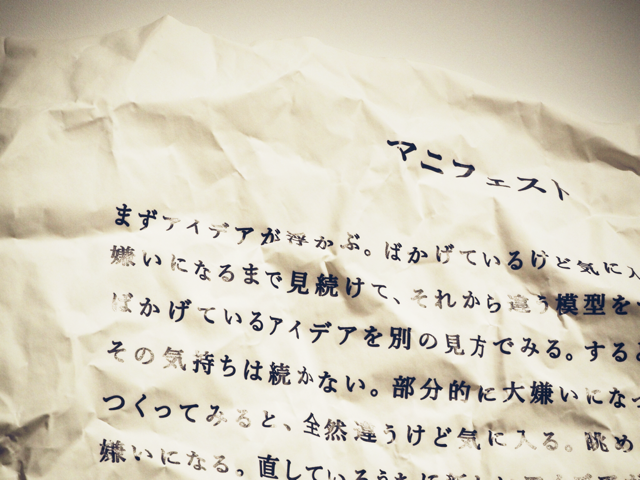 マニフェスト
まずアイデアが浮かぶ。ばかげているけど気に入
嫌いになるまで見続けて、それから違う模型を
ばかげているアイデアを別の見方でみる。する
その気持ちは続かない。部分的に大嫌いになっ
つくってみると、全然違うけど気に入る。眺め
嫌いになる。直しているうちに新しい